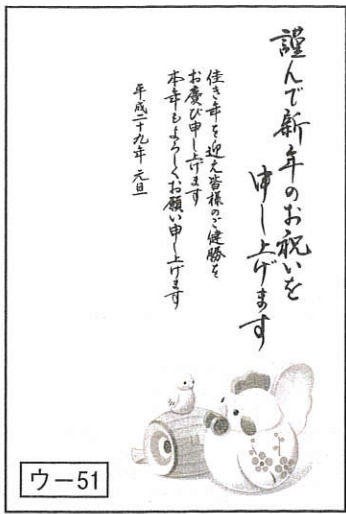 謹んで新年のお祝いを
申し上げます
佳き年を迎え皆様のご健勝を
お慶び申し上げます
本年もよろしくお願い申し上げます
平成二十九年 元旦
ウー51